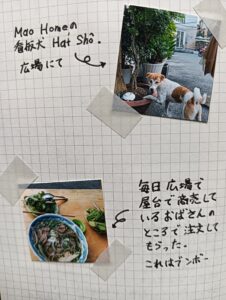 Mao Homeの
看板犬 Hat Shô.
広場にて
毎日広場で
屋台で商売して
いるおばさんの
ところで注文して
もらった。
これはブンボー